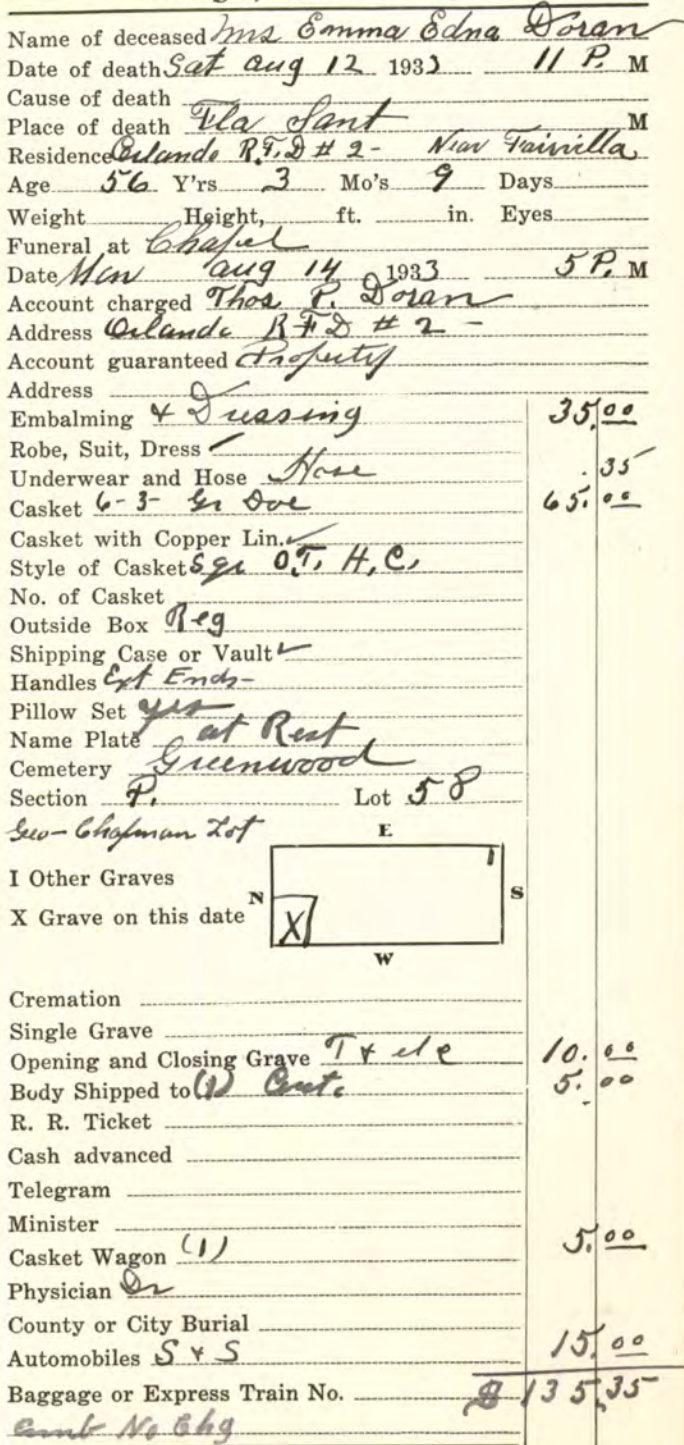 Name of deceased Mrs Emma Edna Doran
Date of death Sat Aug 12 1933 11 P. M
Cause of death
Place of death Fla Sant M
Residence Orlando R.F.D # 2 - Near Fairvilla
Age 56 Y'rs 3 Mo's 9 Days
Weight Height, ft. in. Eyes
Funeral at Chapel
Date Mon Aug 14 1933 5 P. M
Account charged Thos P. Doran
Address Orlando R F D # 2 -
Account guaranteed Property
Address
Embalming & Dressing 35.00
Robe, Suit, Dress
Underwear and Hose Hose .35
Casket 6-3- Gr Doe 65.00
Casket with Copper Lin.
Style of Casket Sqr O.T. H.C.
No. of Casket
Outside Box Reg
Shipping Case or Vault
Handles Ext Ends-
Pillow Set yes
Name Plate at Rest
Cemetery Greenwood
Section P. Lot 58
Geo- Chapman Lot
E
I Other Graves
N I S
X Grave on this date X
W
Cremation
Single Grave
Opening and Closing Grave T & 10.00
Body Shipped to (1) 5.00
R. R. Ticket
Cash advanced
Telegram
Minister
Casket Wagon (1) 5.00
Physician Dr
County or City Burial
Automobiles S & S 15.00
Baggage or Express Train No. $ 135.35
Amb No Chg